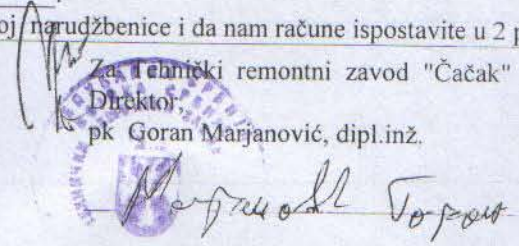 oj narudžbenice i da nam račune ispostavite u 2 p
Za Tehnički remontni zavod "Čačak"
Direktor,
pk Goran Marjanović, dipl.inž.
Марјановић Горан